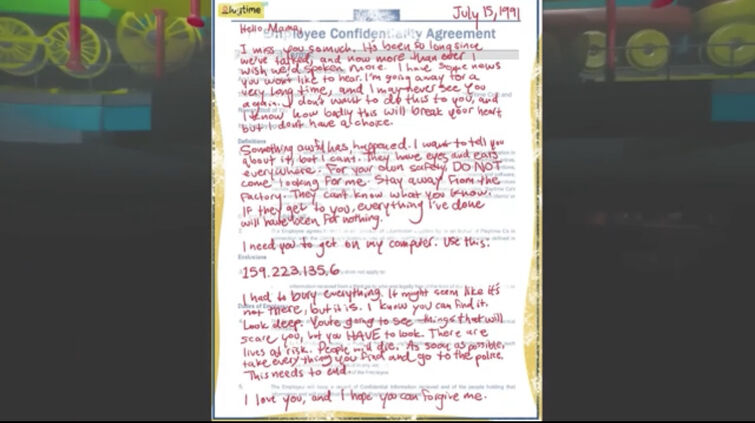 Playtime
July 15, 1991
Hello Mama,
Employee Confidentiality Agreement
I miss you so much. It's been so long since
we've talked, and now more than ever I
wish we'd spoken more. I have some news
you won't like to hear. I'm going away for a
very long time, and I may never see you
again. I don't want to do this to you, and
I know how badly this will break your heart
but I don't have a choice.
Definitions
Something awful has happened. I want to tell you
about it, but I can't. They have eyes and ears
everywhere. For your own safety, DO NOT
come looking for me. Stay away from the
factory. They can't know what you know.
If they get to you, everything I've done
will have been for nothing.
I need you to get on my computer. Use this.
Exclusions
159.223.135.6
I had to bury everything. It might seem like it's
not there, but it is. I know you can find it.
Look deep. You're going to see things that will
scare you, but you HAVE to look. There are
lives at risk. People will die. As soon as possible,
take everything you find and go to the police.
This needs to end.
of the Employee
The Employee will keep a record of Confidential Information received and of the people holding that
I love you, and I hope you can forgive me.